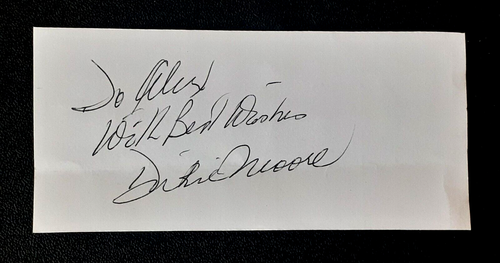 To Alex
With Best Wishes
Dickie Moore